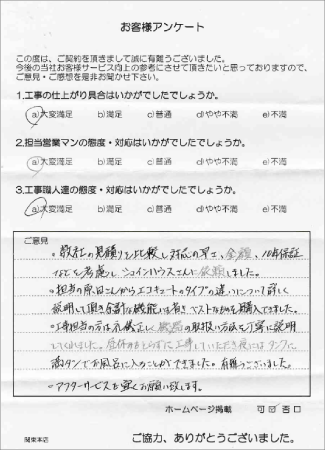 お客様アンケート
この度は、ご契約を頂きまして誠に有難うございました。
今後の当社お客様サービス向上の参考にさせて頂きたいと思っておりますので、
ご意見・ご感想を是非お聞かせ下さい。
1.工事の仕上がり具合はいかがでしたでしょうか。
a)大変満足 b)満足 c)普通 d)やや不満 e)不満
2.担当営業マンの態度・対応はいかがでしたでしょうか。
a)大変満足 b)満足 c)普通 d)やや不満 e)不満
3.工事職人達の態度・対応はいかがでしたでしょうか。
a)大変満足 b)満足 c)普通 d)やや不満 e)不満
ご意見
。数社の見積りを比較し対応の早さ、金額、10年保証
などを考慮しジョインハウスさんに依頼しました。
。担当の原田さんからエコキュートのタイプの違いについて詳しく
説明して頂き余計な機能は省きベストなものを購入できました。
。工事担当の方は礼儀正しく機器の取扱い方法を丁寧に説明
してくれました。昼休みもとらずに工事していただき夜にはタンクに
満タンでお風呂に入ることができました。有難うございました。
。アフターサービスを宜しくお願い致します。
ホームページ掲載 可 ☑ 否 □
関東本店
ご協力、ありがとうございました。